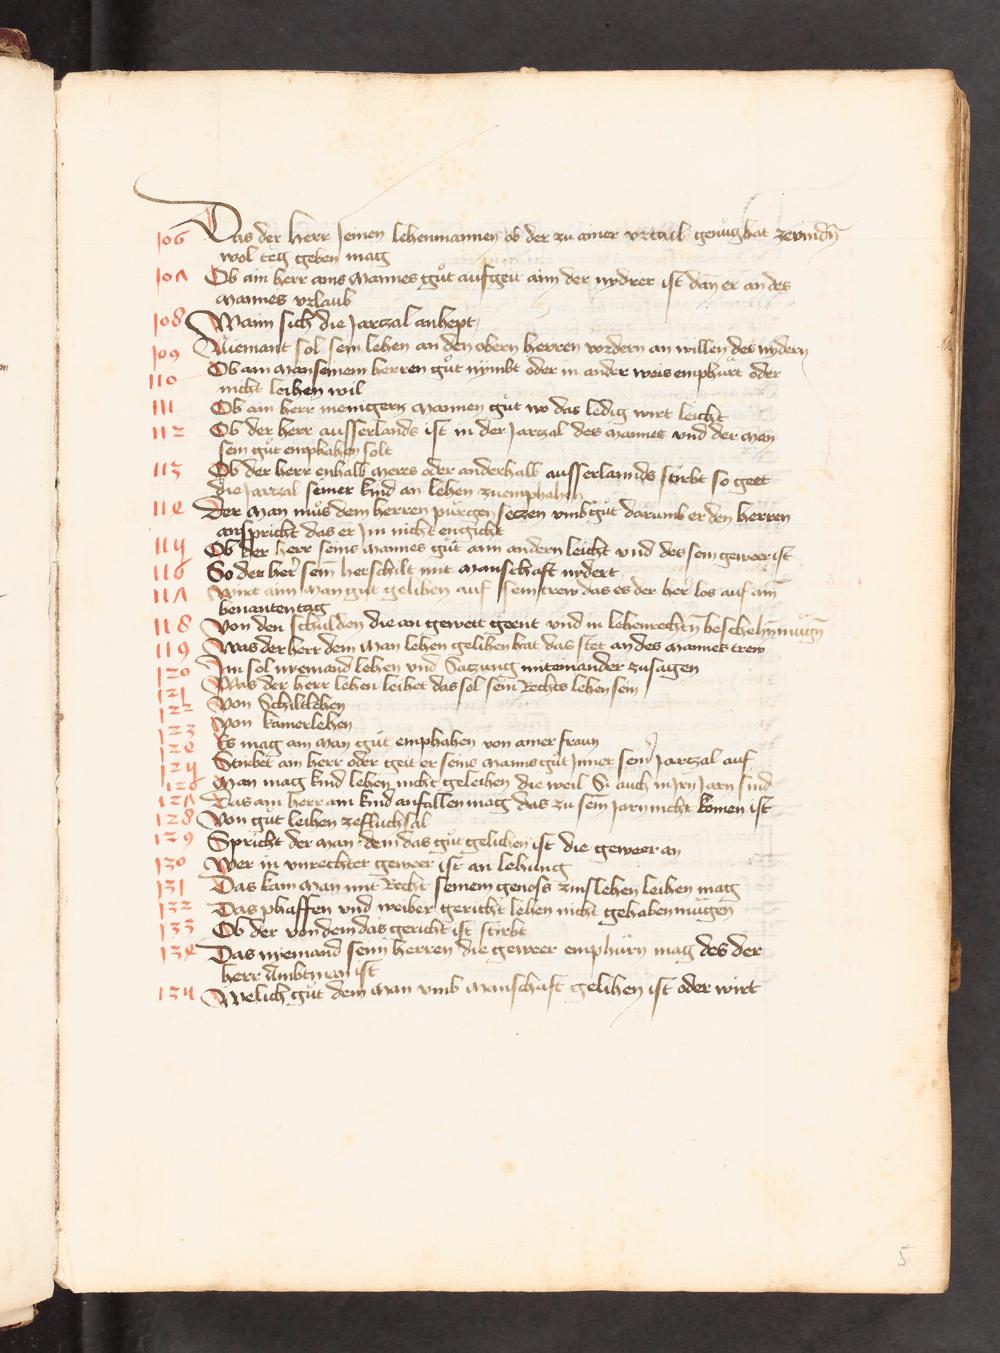 106 Das der herr seinen lehenmannen ob der zu ainer vrtail genüg hat
wol teg geben mag
107 Ob ain herr ains mannes güt aufgeit aim der nydrer ist dañ er an des
mannes vrlaub
108 Wann sich die Jarczal anhept
109 Niemant sol sein lehen an den obern herren vordern an willen des nydern
110 Ob ain man seinem herren güt nymbt oder in ander weis emphürt oder
nicht leihen wil
111 Ob ain herr menigern mannen güt wo das ledig wirt leicht
112 Ob der herr ausserlands ist in der Jarczal des mannes vnd der man
sein güt emphahen solt
113 Ob der herr enhalb meres oder anderhalb ausserlannds stirbt so geet
die Jarczal seiner kind an lehen zuemphahen
114 Der man müs dem herren pürgen seczen vmb güt darumb er den herren
anspricht das er Im nicht engicht
115 Ob der herr seins mannes güt aim andern leicht vnd des sein geweer ist
116 So der her sein herschilt mit manschaft nydert
117 Wirt aim man gut gelihen auf sein trew das es der her los auf ain
benanten tag
118 Von den schulden die an gewett geent vnd in lehenrechtn̄
119 Was der herr dem man lehen gelihen hat das stet an des mannes trew
120 Im sol nyemand lehen vnd Saczung miteinander zusagen
121 Was der herr lehen leihet das sol sein Rechts lehen sein
122 Von Schiltlehen
123 Von kamerlehen
124 Es mag ain man güt emphahen von ainer fraun
125 Stirbet ain herr oder geit er seins manns güt Inner sein̄ Jarczal auf
126 Man mag kind lehen nicht geleihen die weil Si auch in Irn Jarn sind
127 Das ain herr ain kind anfallen mag das zu sein Jarn nicht komen ist
128 Von güt leihen zefluchsal
129 Spricht der man dem das güt gelichen ist die geweer an
130 Wer in vnrechter geweer ist an lehung
131 Das kain man mit Recht seinem genoss zinslehen leihen mag
132 Das phaffen vnd weiber gericht lehen nicht gehaben mügen
133 Ob der von dem das gericht ist stirbt
134 Das nyemand seim herren die geweer emphürn mag des der
herr Ambtman ist
135 Welich güt dem man vmb manschaft gelihen ist oder wirt
5